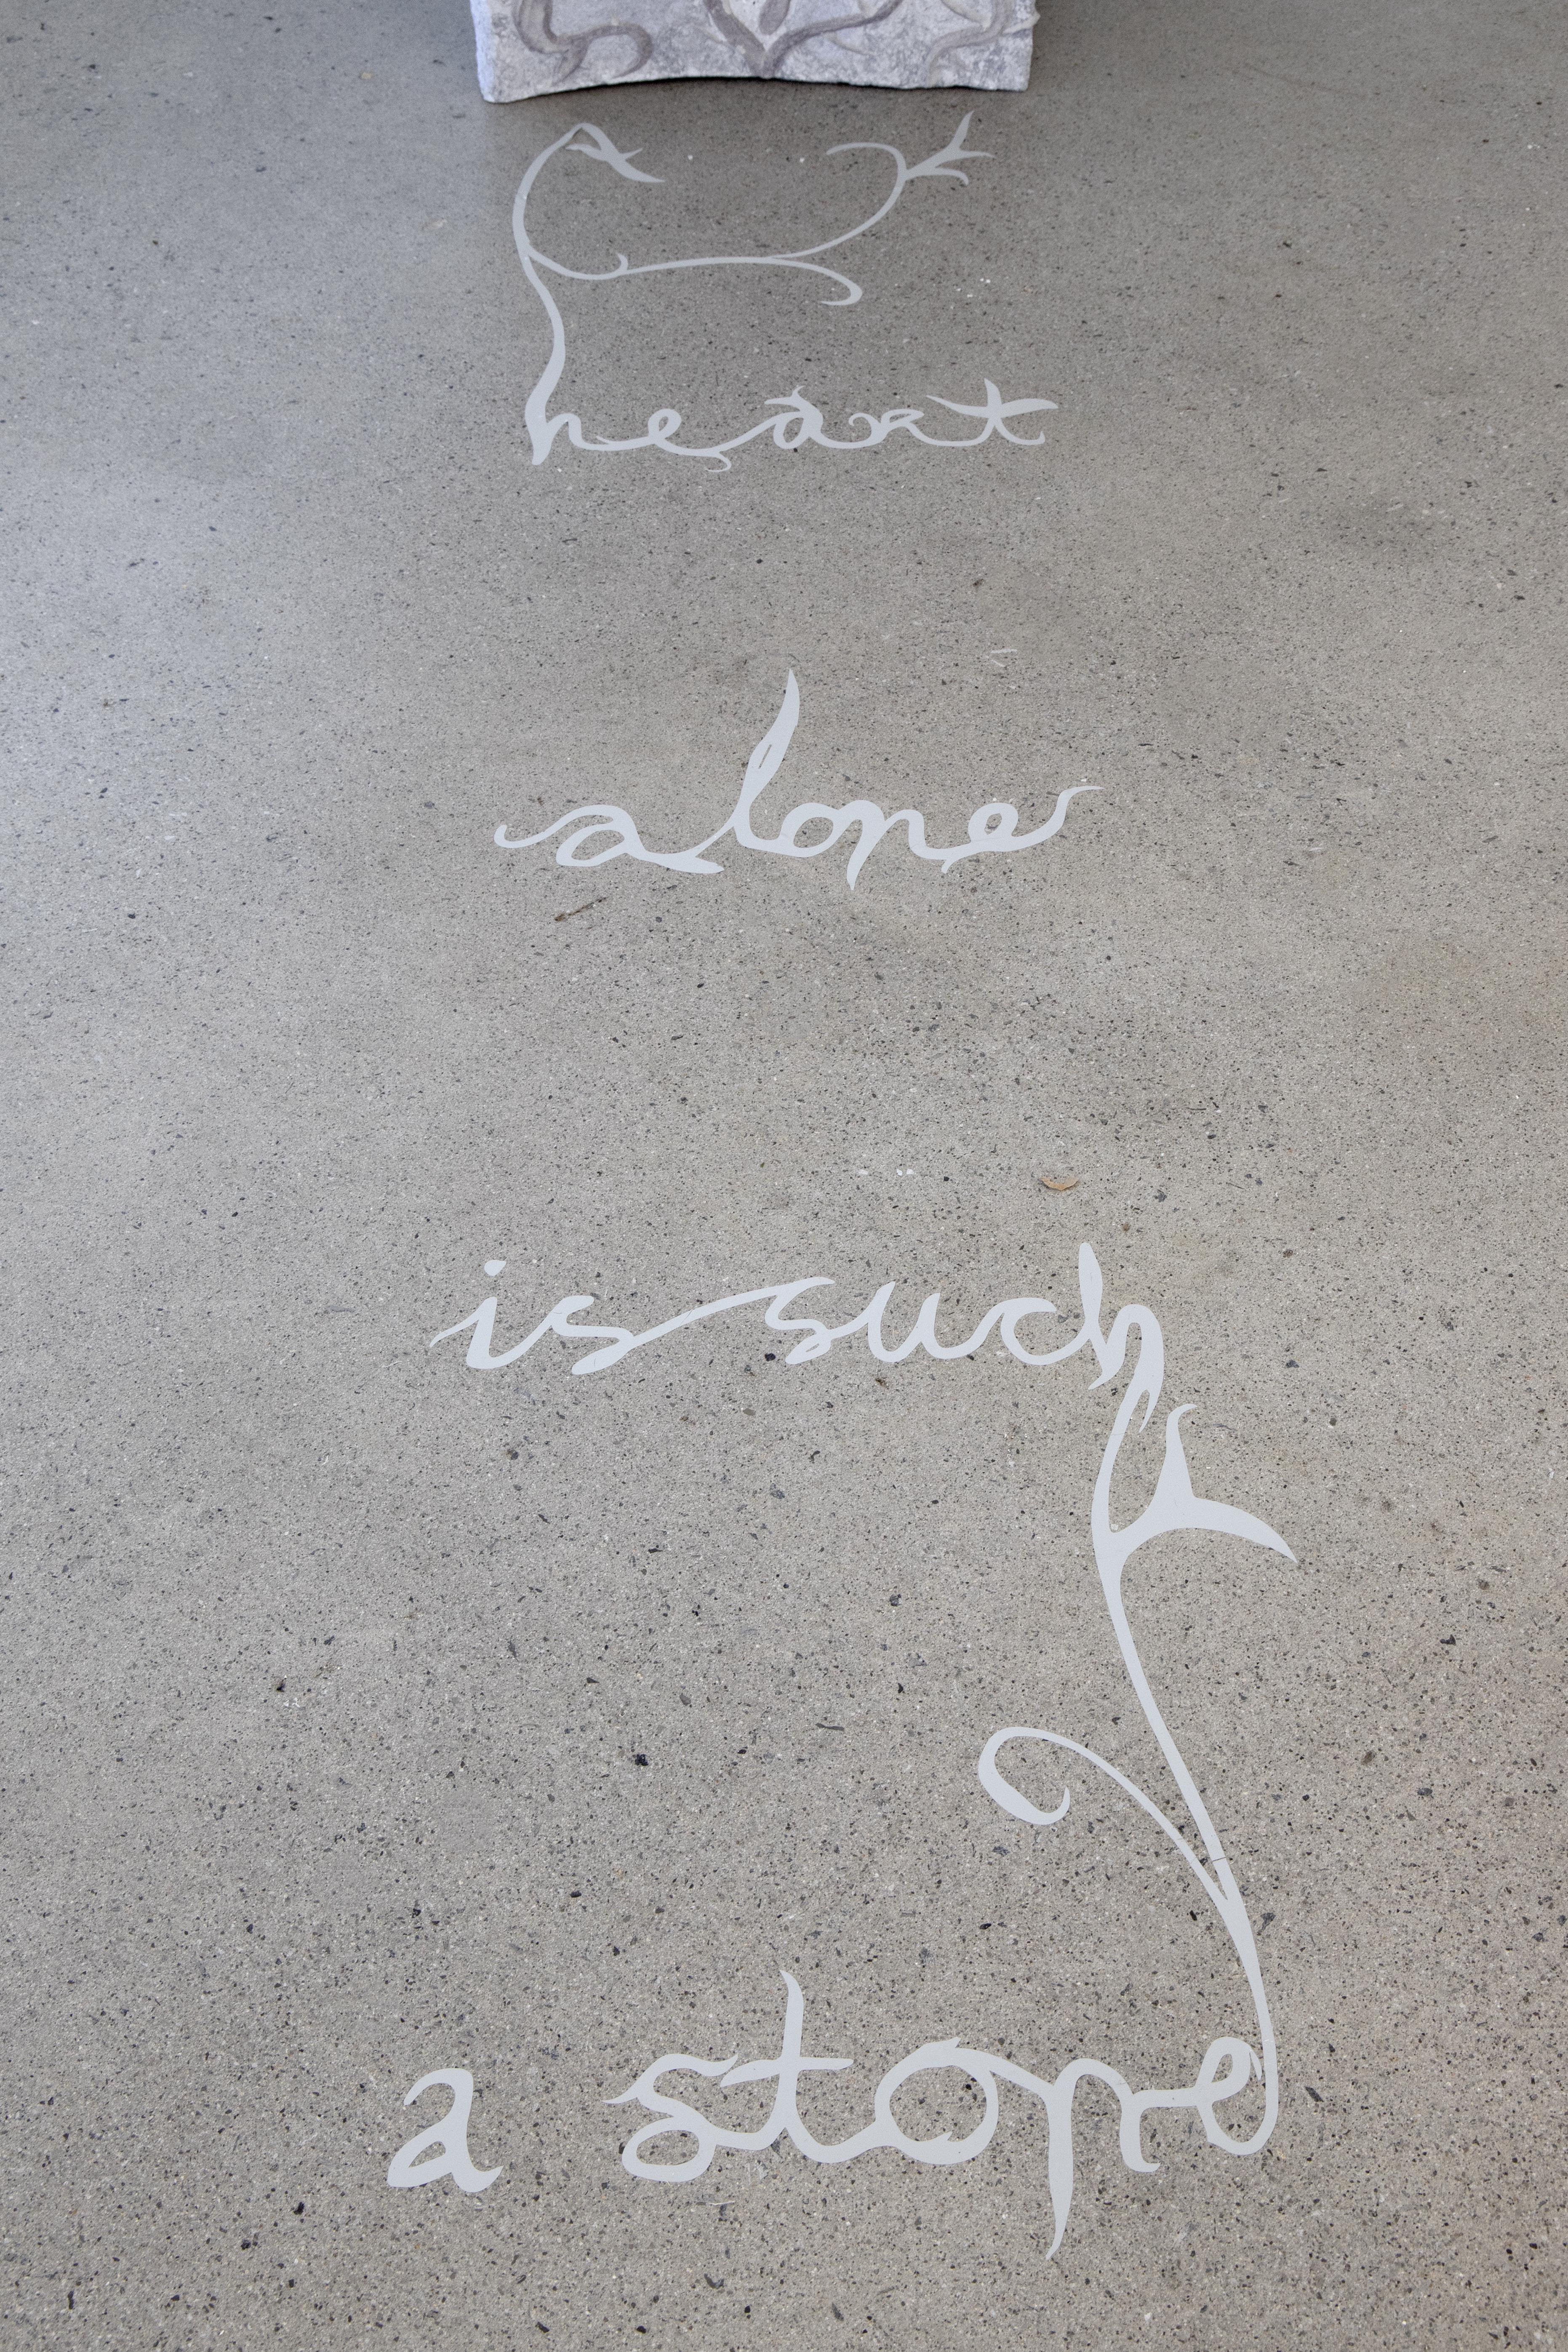 heart
alone
is such
a stone